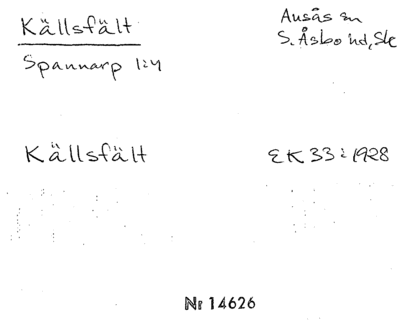 Källsfält
Ausås sn
Spannarp 1:4
S. Åsbo hd, Sk
Källsfält
EK 33:1928
Nr 14626